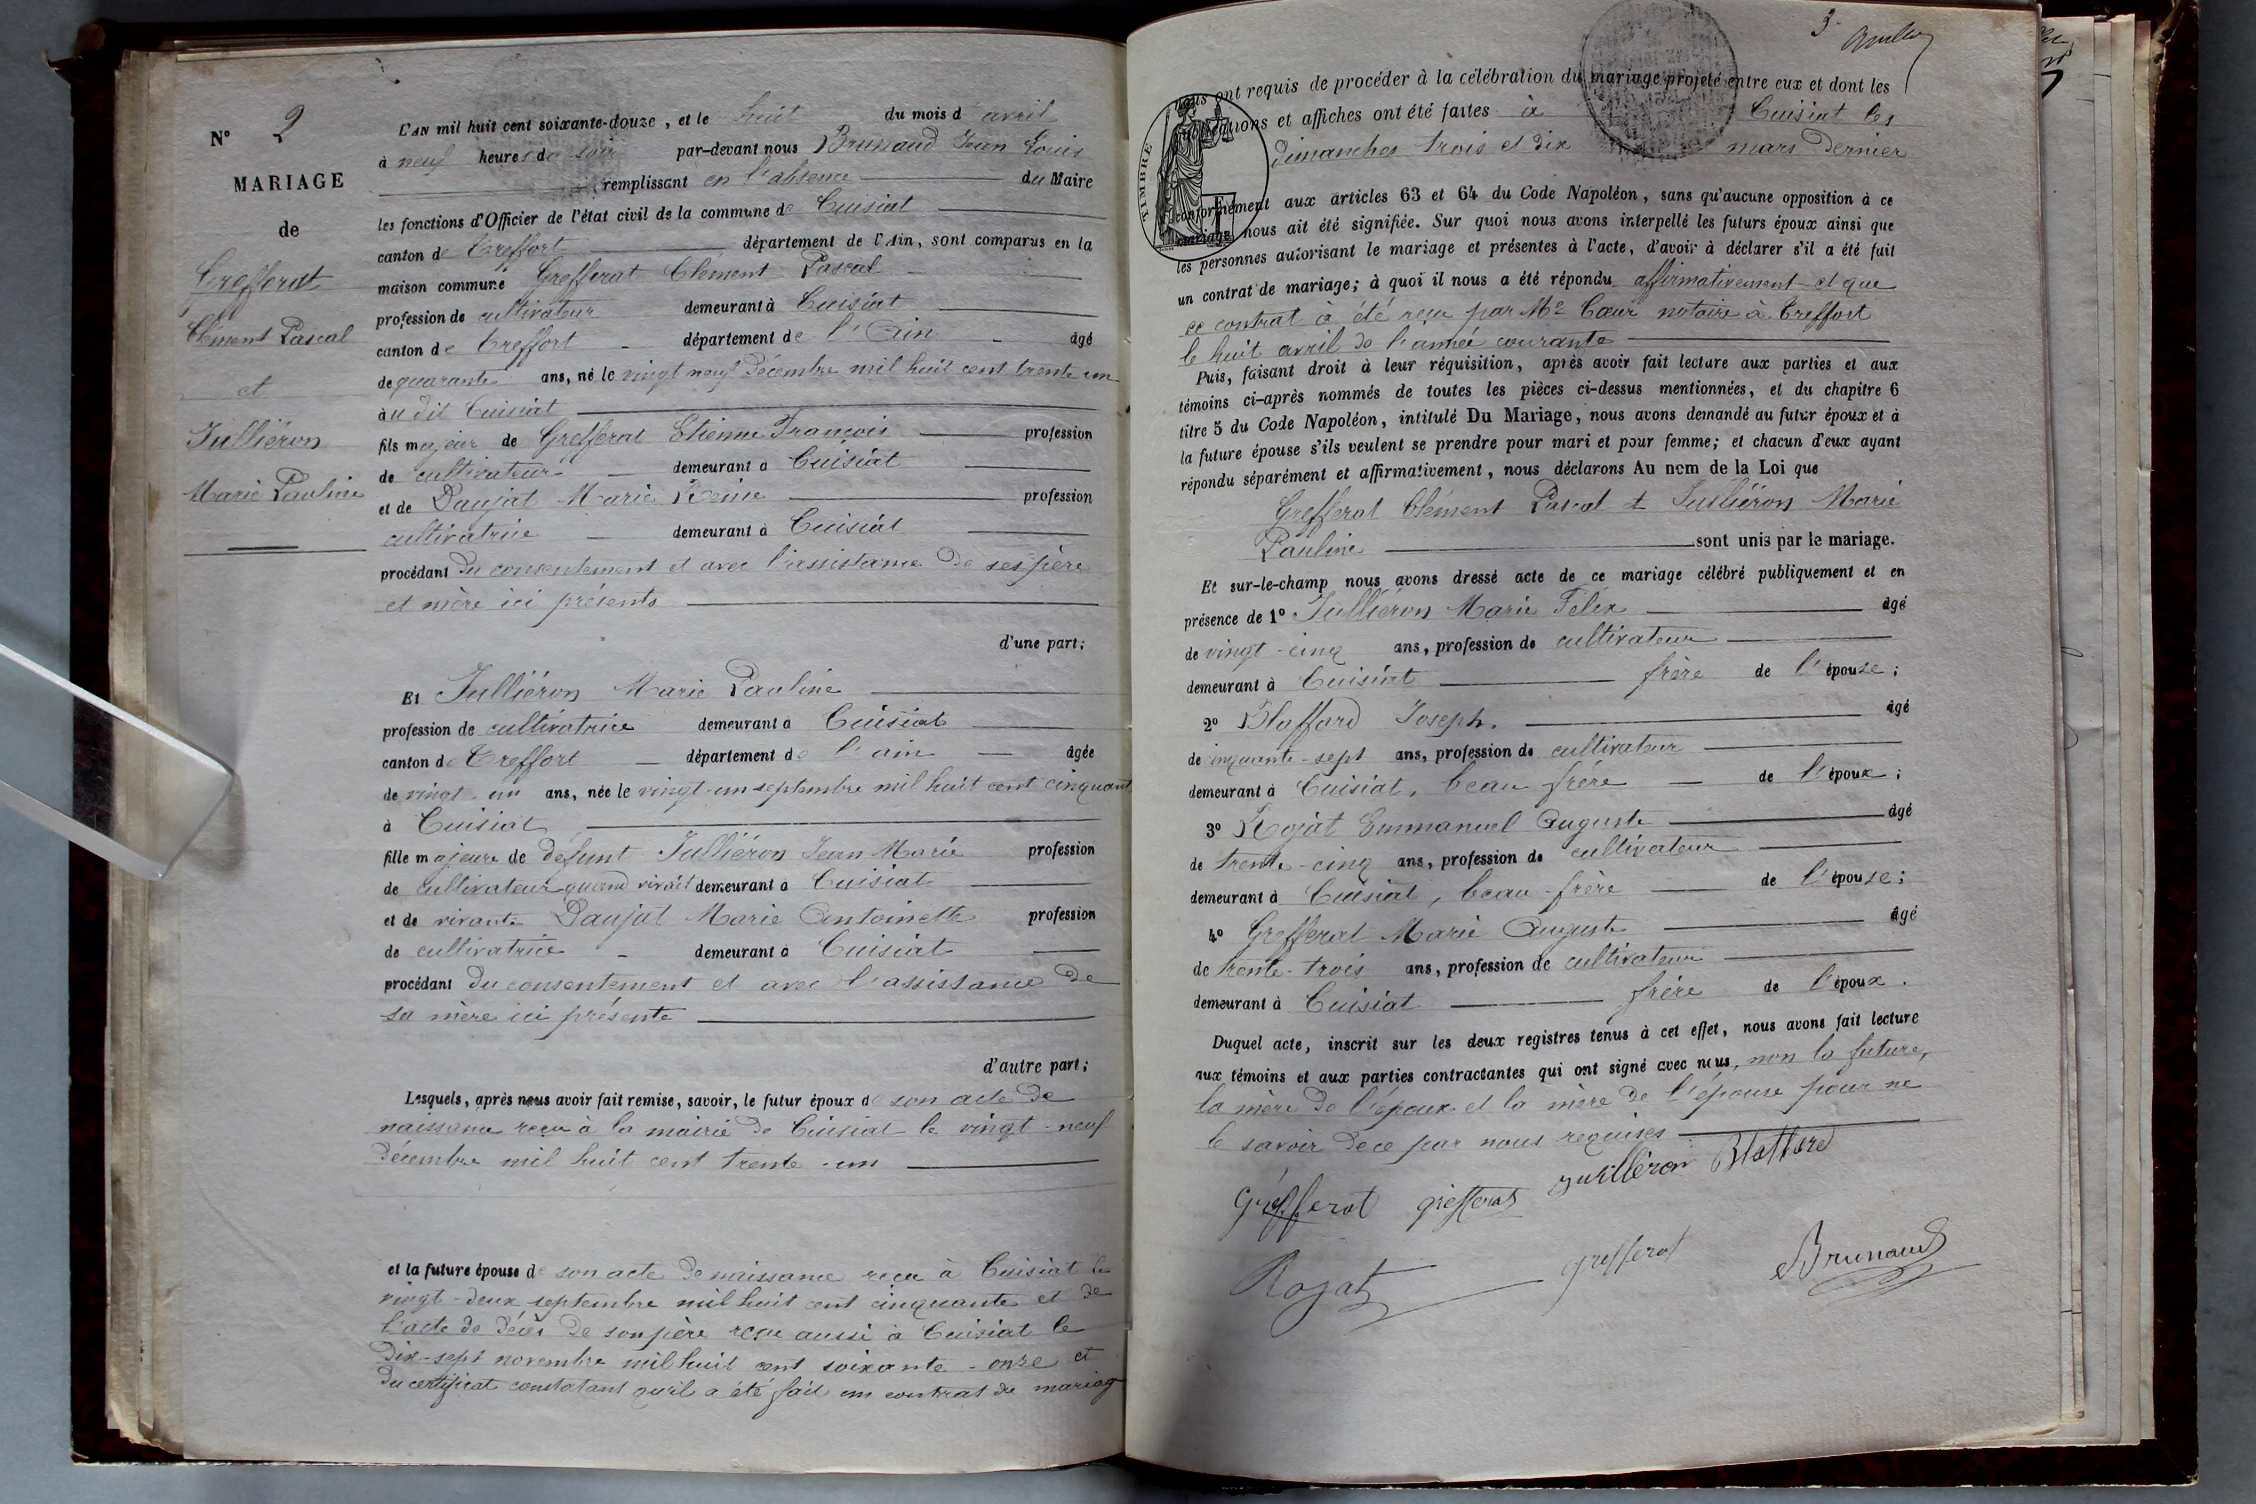 N° 2
MARIAGE
de
Grefferat
Clément Pascal
et
Julliéron
Marie Pauline
L'AN mil huit cent soixante-douze, et le huit du mois d avril
à neuf heures du soir par-devant nous Brunaud Jean Louis
remplissant en l'absence du Maire
les fonctions d'Officier de l'état civil de la commune de Cuisiat
canton de Treffort département de l'Ain, sont comparus en la
maison commune Grefferat Clément Pascal
profession de cultivateur demeurant à Cuisiat
canton de Treffort département de l'Ain âgé
de quarante ans, né le vingt neuf Décembre mil huit cent trente un
à u dit Cuisiat
fils majeur de Grefferat Etienne François profession
de cultivateur demeurant à Cuisiat
et de Daujat Marie Reine profession
cultivatrice demeurant à Cuisiat
procédant du consentement et avec l'assistance de ses père
et mère ici présents
d'une part;
Et Julliéron Marie Pauline
profession de cultivatrice demeurant à Cuisiat
canton de Treffort département de l'ain âgée
de vingt-un ans, née le vingt-un septembre mil huit cent cinquant
à Cuisiat
fille majeure de défunt Julliéron Jean Marie profession
de cultivateur quand vivait demeurant à Cuisiat
et de vivante Daujat Marie Antoinette profession
de cultivatrice demeurant à Cuisiat
procédant du consentement et avec l'assistance de
sa mère ici présente
d'autre part;
Lesquels, après nous avoir fait remise, savoir, le futur époux de son acte de
naissance reçu à la mairie de Cuisiat le vingt-neuf
décembre mil huit cent trente-un
et la future épouse de son acte de naissance reçu à Cuisiat le
vingt-deux septembre mil huit cent cinquante et de
l'acte de décès de son père reçu aussi à Cuisiat le
dix-sept novembre mil huit cent soixante-onze et
du certificat constatant qu'il a été fait un contrat de mariag
3
nous ont requis de procéder à la célébration du mariage projeté entre eux et dont les
publications et affiches ont été faites à Cuisiat les
dimanches trois et dix mars dernier
TIMBRE
conformément aux articles 63 et 64 du Code Napoléon, sans qu'aucune opposition à ce
mariage nous ait été signifiée. Sur quoi nous avons interpellé les futurs époux ainsi que
les personnes autorisant le mariage et présentes à l'acte, d'avoir à déclarer s'il a été fait
un contrat de mariage; à quoi il nous a été répondu affirmativement et que
ce contrat à été reçu par Me Cœur notaire à Treffort
le huit avril de l'année courante
Puis, faisant droit à leur réquisition, après avoir fait lecture aux parties et aux
témoins ci-après nommés de toutes les pièces ci-dessus mentionnées, et du chapitre 6
titre 5 du Code Napoléon, intitulé Du Mariage, nous avons demandé au futur époux et à
la future épouse s'ils veulent se prendre pour mari et pour femme; et chacun d'eux ayant
répondu séparément et affirmativement, nous déclarons Au nom de la Loi que
Grefferat Clément Pascal et Julliéron Marie
Pauline sont unis par le mariage.
Et sur-le-champ nous avons dressé acte de ce mariage célébré publiquement et en
présence de 1° Julliéron Marie Félix âgé
de vingt-cinq ans, profession de cultivateur
demeurant à Cuisiat frère de l'épouse;
2° Blaffard Joseph. âgé
de cinquante-sept ans, profession de cultivateur
demeurant à Cuisiat, beau frère de l'époux;
3° Rojat Emmanuel Auguste âgé
de trente-cinq ans, profession de cultivateur
demeurant à Cuisiat, beau-frère de l'épouse;
4° Grefferat Marie Auguste âgé
de trente-trois ans, profession de cultivateur
demeurant à Cuisiat frère de l'époux.
Duquel acte, inscrit sur les deux registres tenus à cet effet, nous avons fait lecture
aux témoins et aux parties contractantes qui ont signé avec nous, non la future,
la mère de l'époux et la mère de l'épouse pour ne
le savoir de ce par nous requises
Grefferat grefferat julliéron Blaffard
Rojat grefferat Brunaud